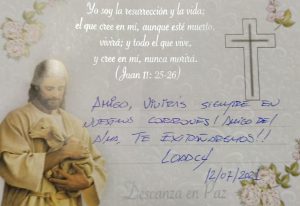 Yo soy la resurrección y la vida:
el que cree en mi, aunque esté muerto,
vivirá; y todo el que vive,
y cree en mi, nunca morirá.
(Juan 11: 25-26)
AMIGO, VIVIRÁS SIEMPRE EN
NUESTROS CORAZONES! AMIGO DEL
ALMA, TE EXTRAÑAREMOS!!
12/07/2021
Descanza en Paz